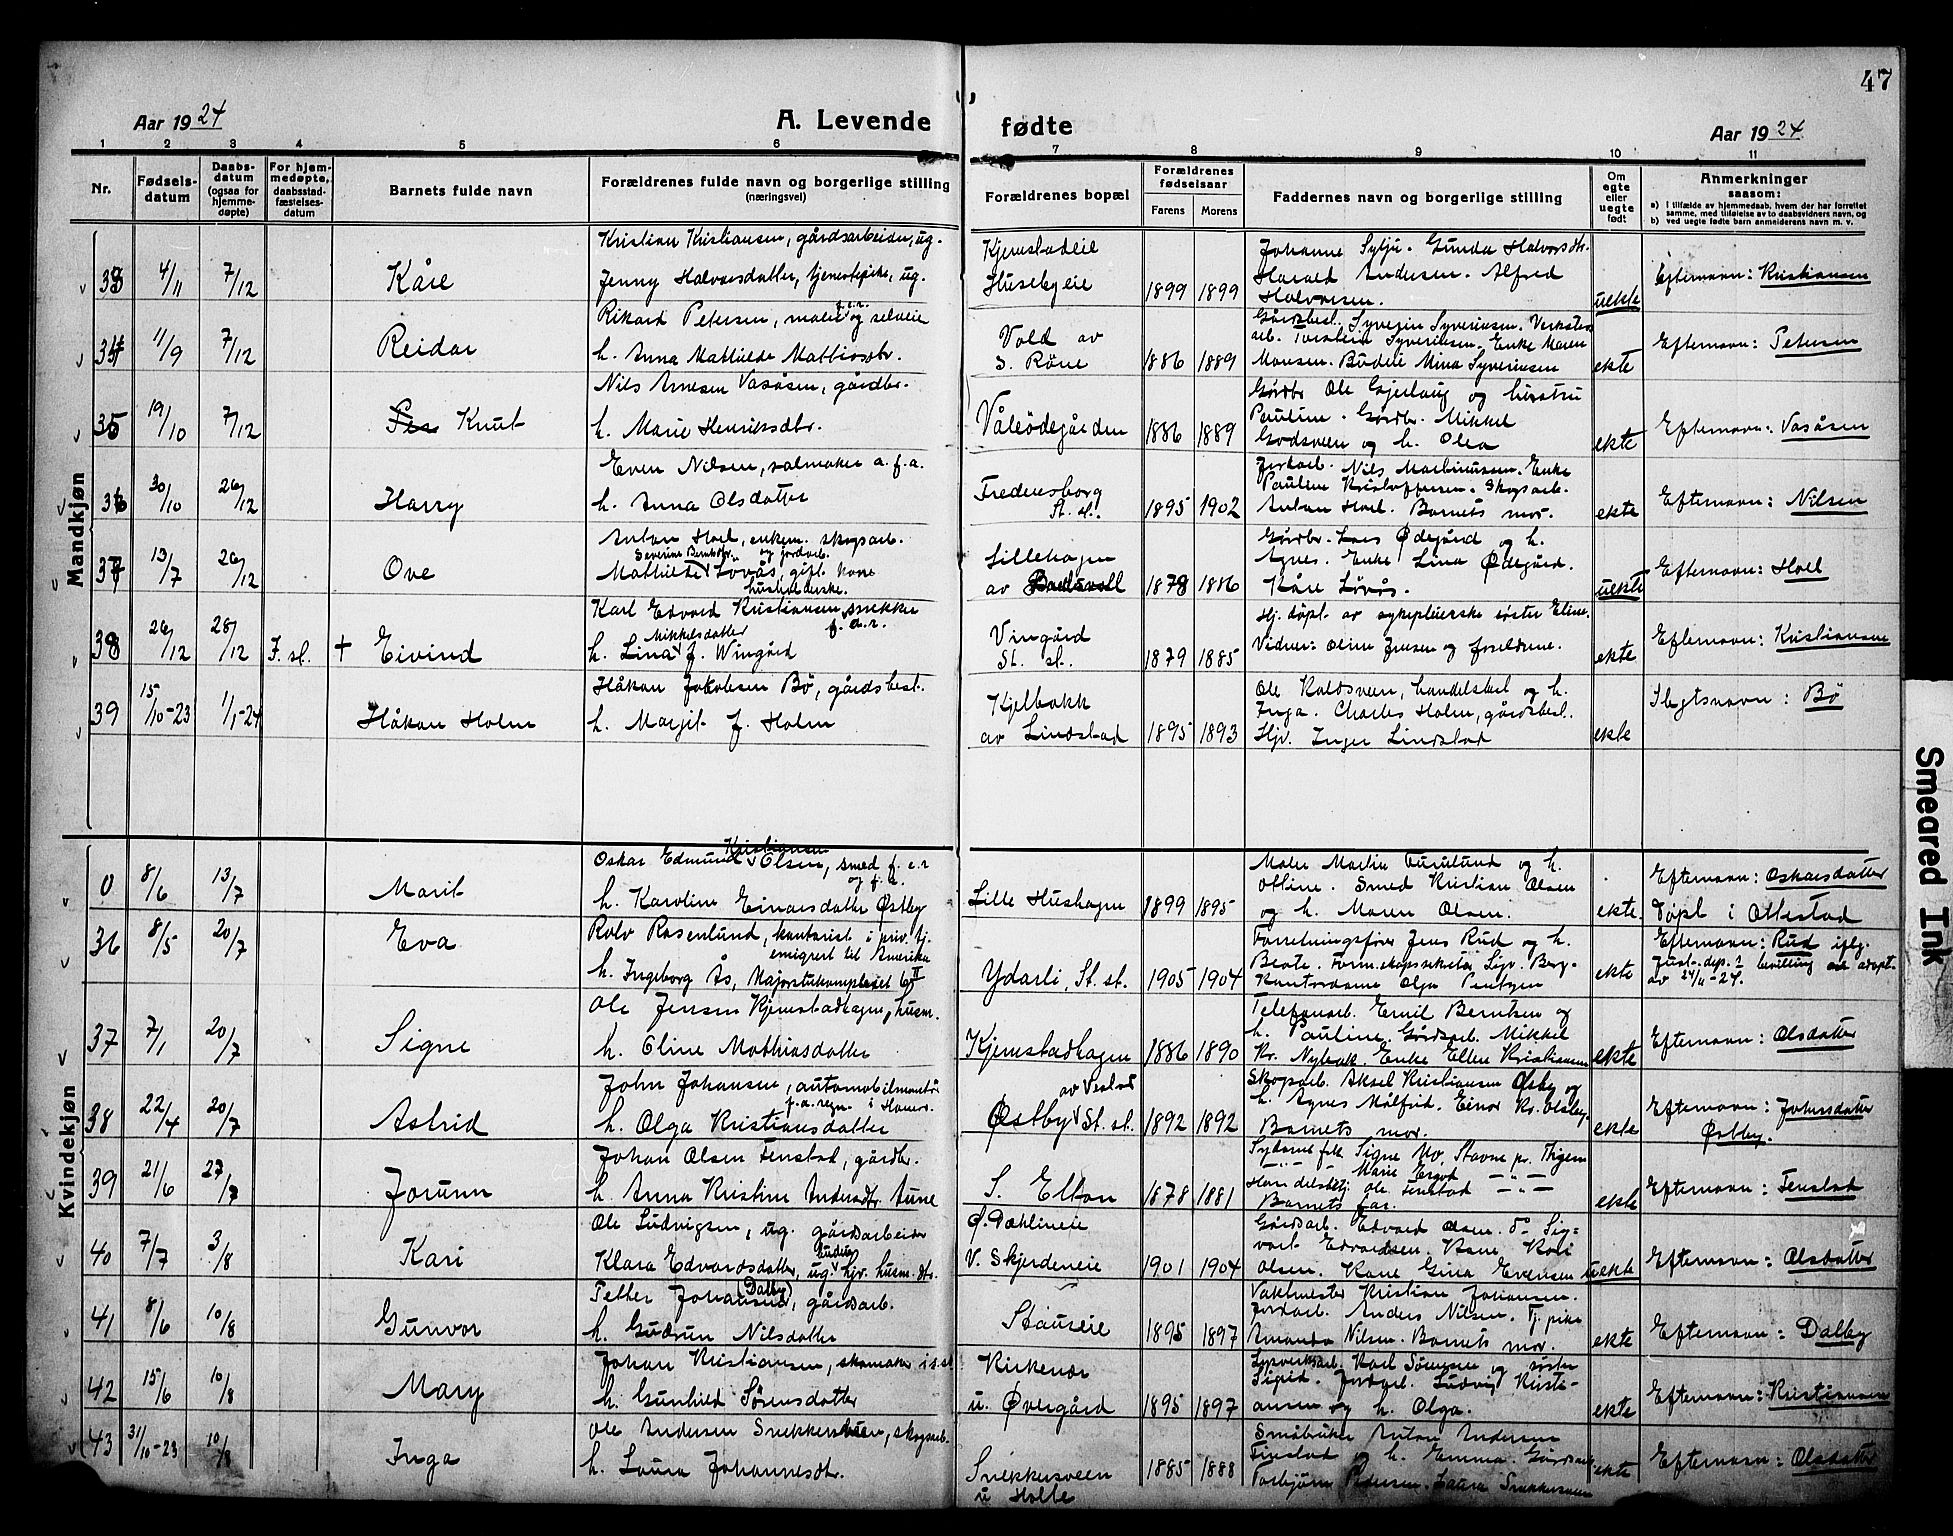 47
Aar 1924 A. Levende fødte Aar 1924
1 2 3 4 5 6 7 8 9 10 11
Nr. Fødselsdatum Daabsdatum (ogsaa for hjemmedøpte) For hjemmedøpte, daabsstadfæstelsesdatum Barnets fulde navn Forældrenes fulde navn og borgerlige stilling (næringsvei) Forældrenes bopæl Forældrenes fødselsaar Farens Morens Faddernes navn og borgerlige stilling Om egte eller uegte født Anmerkninger saasom: a) I tilfælde av hjemmedaab, hvem der har forrettet samme, med tilføielse av to daabsvidners navn, og b) ved uegte fødte barn anmelderens navn m. v.
Mandkjøn
Kristian Kristiansen, gårdsarbeider, ug. Kjemstadeie Johanne Sylju. Gunda Halvorsdtr.
33 4/11 7/12 Kåre Jenny Halvorsdatter, tjenestepike, ug. Husebyeie 1899 1899 Harald Andersen. Alfred Halvorsen. uekte Efternavn: Kristiansen
Rikard Petersen, maler og selveie Gårdbesl. Syverin Syverinsen. Verksteds
34 11/9 7/12 Reidar h. Anna Mathilde Mathiasdtr. Vold av S. Røne 1886 1889 arb. Torstein Syverinsen. Enke Maren Monsen. Budeie Mina Syverinsen ekte Efternavn: Petersen
Nils Arnesen Vasåsen, gårdbr. Gårdbr. Ole Gjerlaug og hustru
35 19/10 7/12 Per Knut h. Marie Henriksdtr. Våleødegården 1886 1889 Pauline. Gårdbr. Mikkel Godsveen og h. Olea ekte Efternavn: Vasåsen
Even Nilsen, salmaker a. f. a. Jordarb. Nils Martinussen. Enke
36 30/10 26/12 Harry h. Anna Olsdatter Fredensborg St. sl. 1895 1902 Pauline Kristoffersen. Skogsarb. Anton Hoel. Barnets mor. ekte Efternavn: Nilsen
Anton Hoel, enkem. skogsarb. og jordarb. Gårdbr. Lars Ødegård og h.
37 13/7 26/12 Ove Mathilde Severine Berntsdtr. Løvås, gift kone husholderske. Lillehagen av 1878 1886 Agnes. Enke Lina Ødegård. Kåre Løvås. uekte Efternavn: Hoel
Karl Edvard Kristiansen, snekker f. e. r. Hj. døpt av sykepleierske søster Eline.
38 26/12 28/12 F. sl. + Eivind h. Lina Mikkelsdatter f. Wingård Vingård St. sl. 1879 1885 Vidner: Oline Jensen og foreldrene. ekte Efternavn: Kristiansen
39 15/10-23 1/1-24 Håkon Holm Håkon Jakobsen Bø, gårdsbest. h. Marjit f. Holm Kjelbakk av Lindstad 1895 1893 Ole Koldsveen, handelsbest og h. Inga. Charles Holm, gårdsbest. Hjv. Inger Lindstad ekte Slegtsnavn: Bø
Kvindekjøn
0 8/6 13/7 Marit Oskar Edmund Kristiansen Olsen, smed f. e. r og f. a. h. Karoline Einarsdatter Østby Lille Hushagen 1899 1895 Maler Martin Furulund og h. Otline. Smed Kristian Olsen og h. Maren Olsen. ekte. Efternavn: Oskarsdatter Døpt i Ottestad
36 8/5 20/7 Eva Rolv Rosenlund, kontorist i priv. tj. emigrert til Amerika h. Ingeborg Ås, Majorstukomplekset 6 II Ydarli, St. st. 1905 1904 Forretningsfører Jens Rud og h. Beate. Kontordame Olga Pentzen ekte Efternavn: Rud iflg. Just.-dep.s bevilling adopt. av 24/11-24.
37 7/1 20/7 Signe Ole Jensen Kjemstadhagen, husm. h. Eline Mathiasdatter Kjemstadhagen 1886 1890 Telefonarb. Emil Berntsen og h. Pauline. Gårdsarb. Mikkel Kr. Nybak. Enke Ellen Kristiansen ekte Efternavn: Olsdatter
38 22/4 20/7 Astrid John Johansen, automobilmontør f. a. regn. i Hamar. h. Olga Kristiansdatter Østby av Vestad St. sl. 1892 1892 Skogsarb. Aksel Kristiansen Østby og h. Agnes Målfrid. Einar Kr. Olsby. Barnets mor. ekte Efternavn: Johnsdatter Østby.
39 21/6 27/7 Jorunn Johan Olsen Fenstad, gårdbr. h. Anna Kristine Andersdtr. Aune S. Elton 1878 1881 Sydame frk. Signe Stavne pr. Thjem — „ — Marie — „ — Handelsbetj. Ole Fenstad — „ — Barnets far. ekte Efternavn: Fenstad
40 7/7 3/8 Kari Ole Ludvigsen, ug. gårdsarbeider Klara Edvardsdatter, ug. hjv. husm. dtr. S. Dæhlineie V. Skjerdeneie 1901 1904 Gårdsarb. Edvard Olsen. Do Sigvart Edvardsen. Kone Kari Olsen. Kone Gina Evensen uekte Efternavn: Olsdatter
41 8/6 10/8 Gunvor Petter Johansen (Dalby), gårdsarb. h. Gudrun Nilsdatter Stauseie 1895 1897 Vaktmester Kristian Johansen. Jordarb. Anders Nilsen. Tj. pike Amanda Nilsen. Barnets mor. ekte Efternavn: Dalby
42 15/6 10/8 Mary Johan Kristiansen, skomaker i s. st h. Gunhild Sørensdatter Kirkenær u. Øvergård 1895 1897 Karl Sørensen og søster Sigrid. Jordarb. Ludvig Kristiansen og h. Olga. ekte Efternavn: Kristiansen
43 31/10-23 10/8 Inga Ole Andersen Snekkersveen, skogsarb. h. Laura Johannesdtr. Snekkersveen u Holte 1885 1888 Småbruker Anton Andersen Finstad og h. Emma. Gårdsarb. Torbjørn Pedersen. Laura Snekkersveen ekte Efternavn: Olsdatter
Smeared Ink